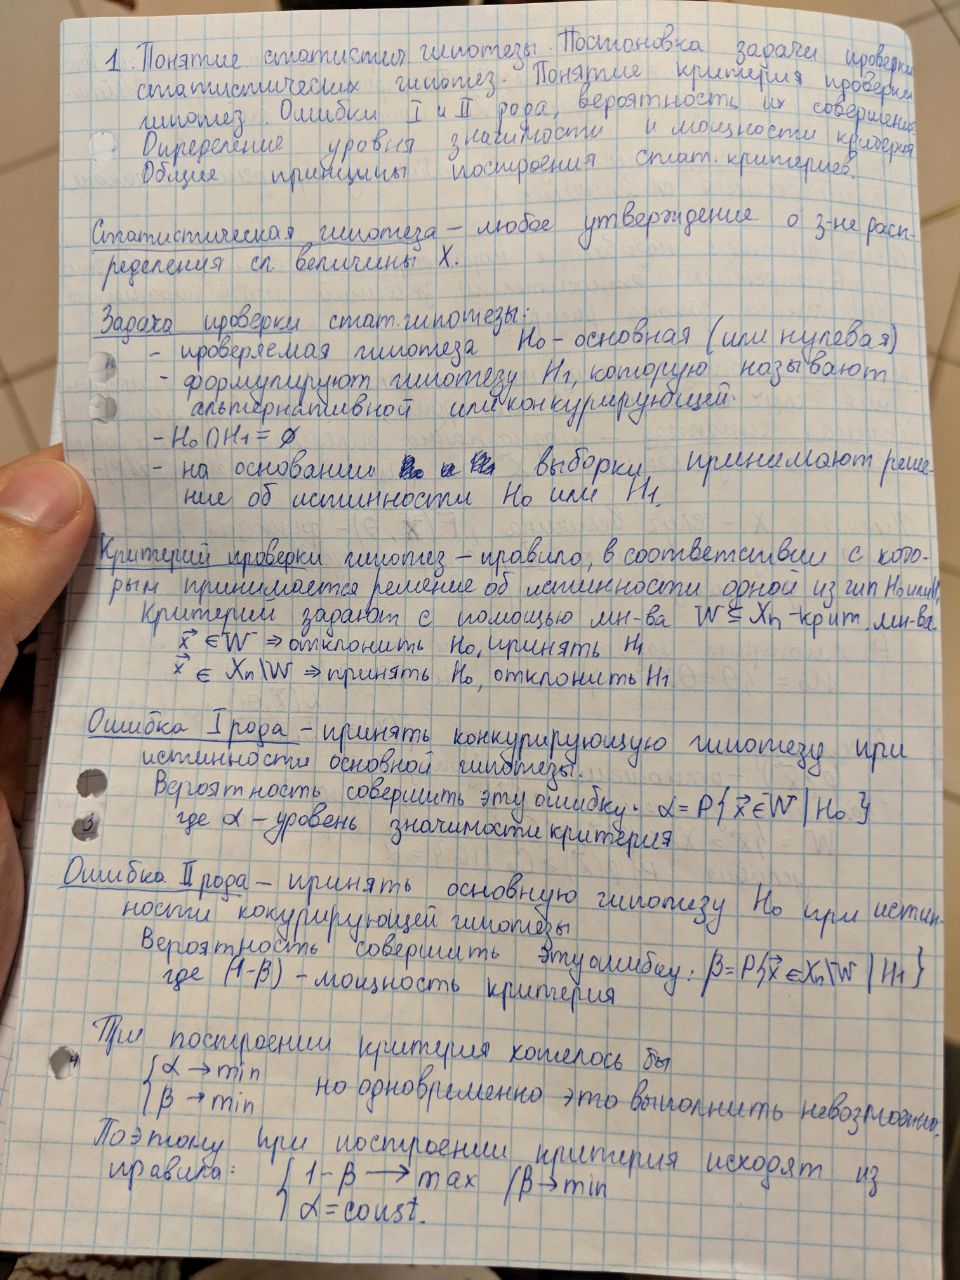 1. Понятие статистич гипотезы. Постановка задачи проверки
статистических гипотез. Понятие критерия проверки
гипотез. Ошибки I и II рода, вероятность их совершения.
Определение уровня значимости и мощности критерия
Общие принципы построения стат. критериев.
Статистическая гипотеза – любое утверждение о з-не расп-
ределения сл. величины X.
Задача проверки стат. гипотезы:
- проверяемая гипотеза H₀ - основная (или нулевая)
- формулируют гипотезу H₁, которую называют
альтернативной или конкурирующей.
- H₀ ∩ H₁ = ∅
- на основании выборки принимают реше-
ние об истинности H₀ или H₁.
Критерий проверки гипотез – правило, в соответствии с кото-
рым принимается решение об истинности одной из гип H₀ или H₁
Критерий задают с помощью мн-ва W ⊆ Xₙ - крит. мн-ва.
x⃗ ∈ W ⇒ отклонить H₀, принять H₁
x⃗ ∈ Xₙ\W ⇒ принять H₀, отклонить H₁
Ошибка I рода – принять конкурирующую гипотезу при
истинности основной гипотезы.
Вероятность совершить эту ошибку: α = P{x⃗ ∈ W | H₀}
где α – уровень значимости критерия
Ошибка II рода – принять основную гипотезу H₀ при истин-
ности кокурирующей гипотезы
Вероятность совершить эту ошибку: β = P{x⃗ ∈ Xₙ\W | H₁}
где (1-β) – мощность критерия
При построении критерия хотелось бы
{ α → min
{ β → min но одновременно это выполнить невозможно.
Поэтому при построении критерия исходят из
правила: { 1-β → max (β → min
{ α = const.
3
4